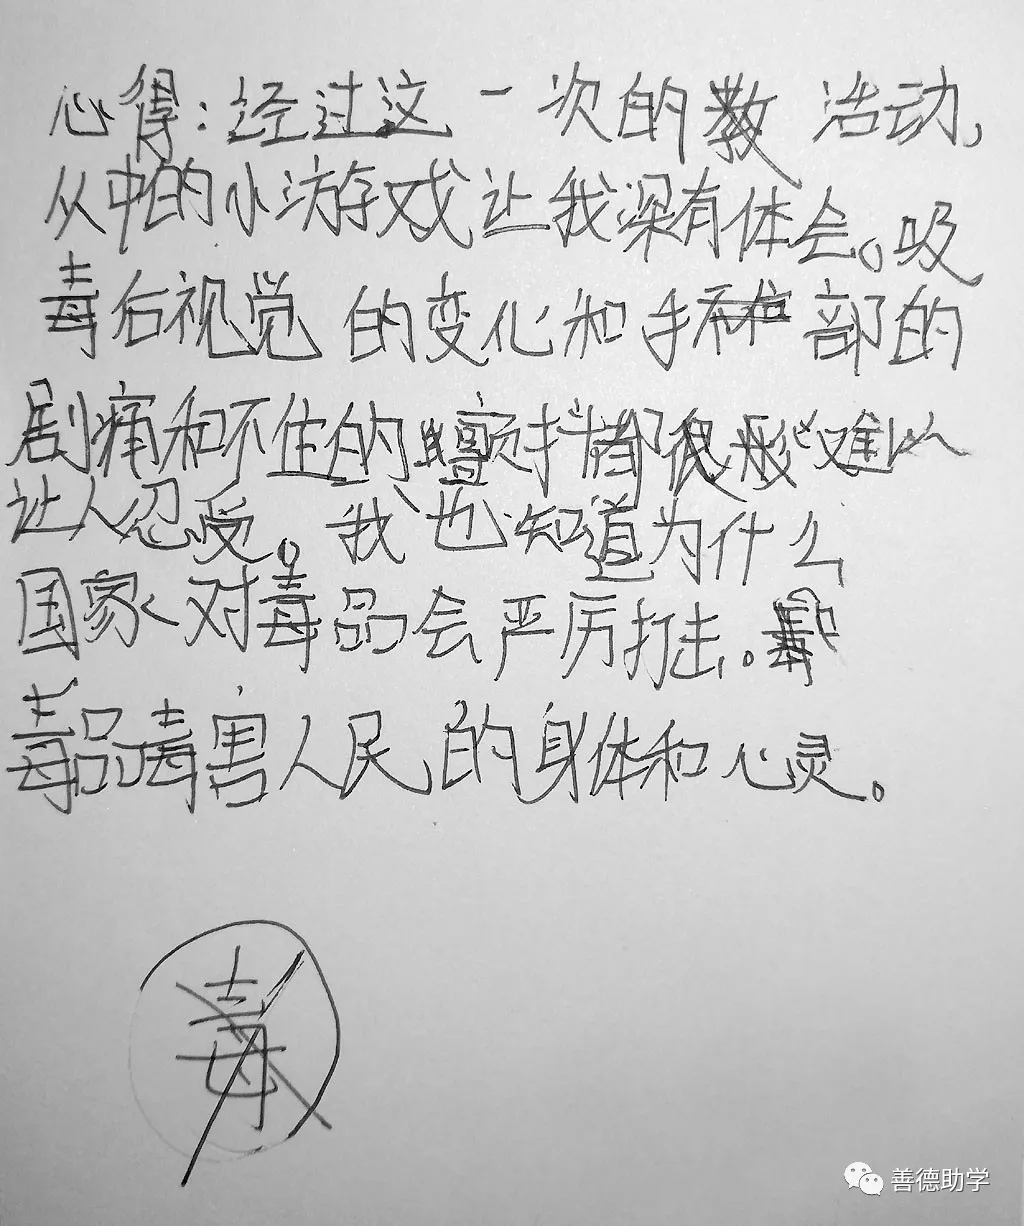 心得:经过这一次的教 活动,
从中的小游戏让我深有体会。吸
毒后视觉的变化和手部的
剧痛和不住的颤抖都很难以
让人忍受。我也知道为什么
国家对毒品会严厉打击。
毒品毒害人民的身体和心灵。
毒
善德助学